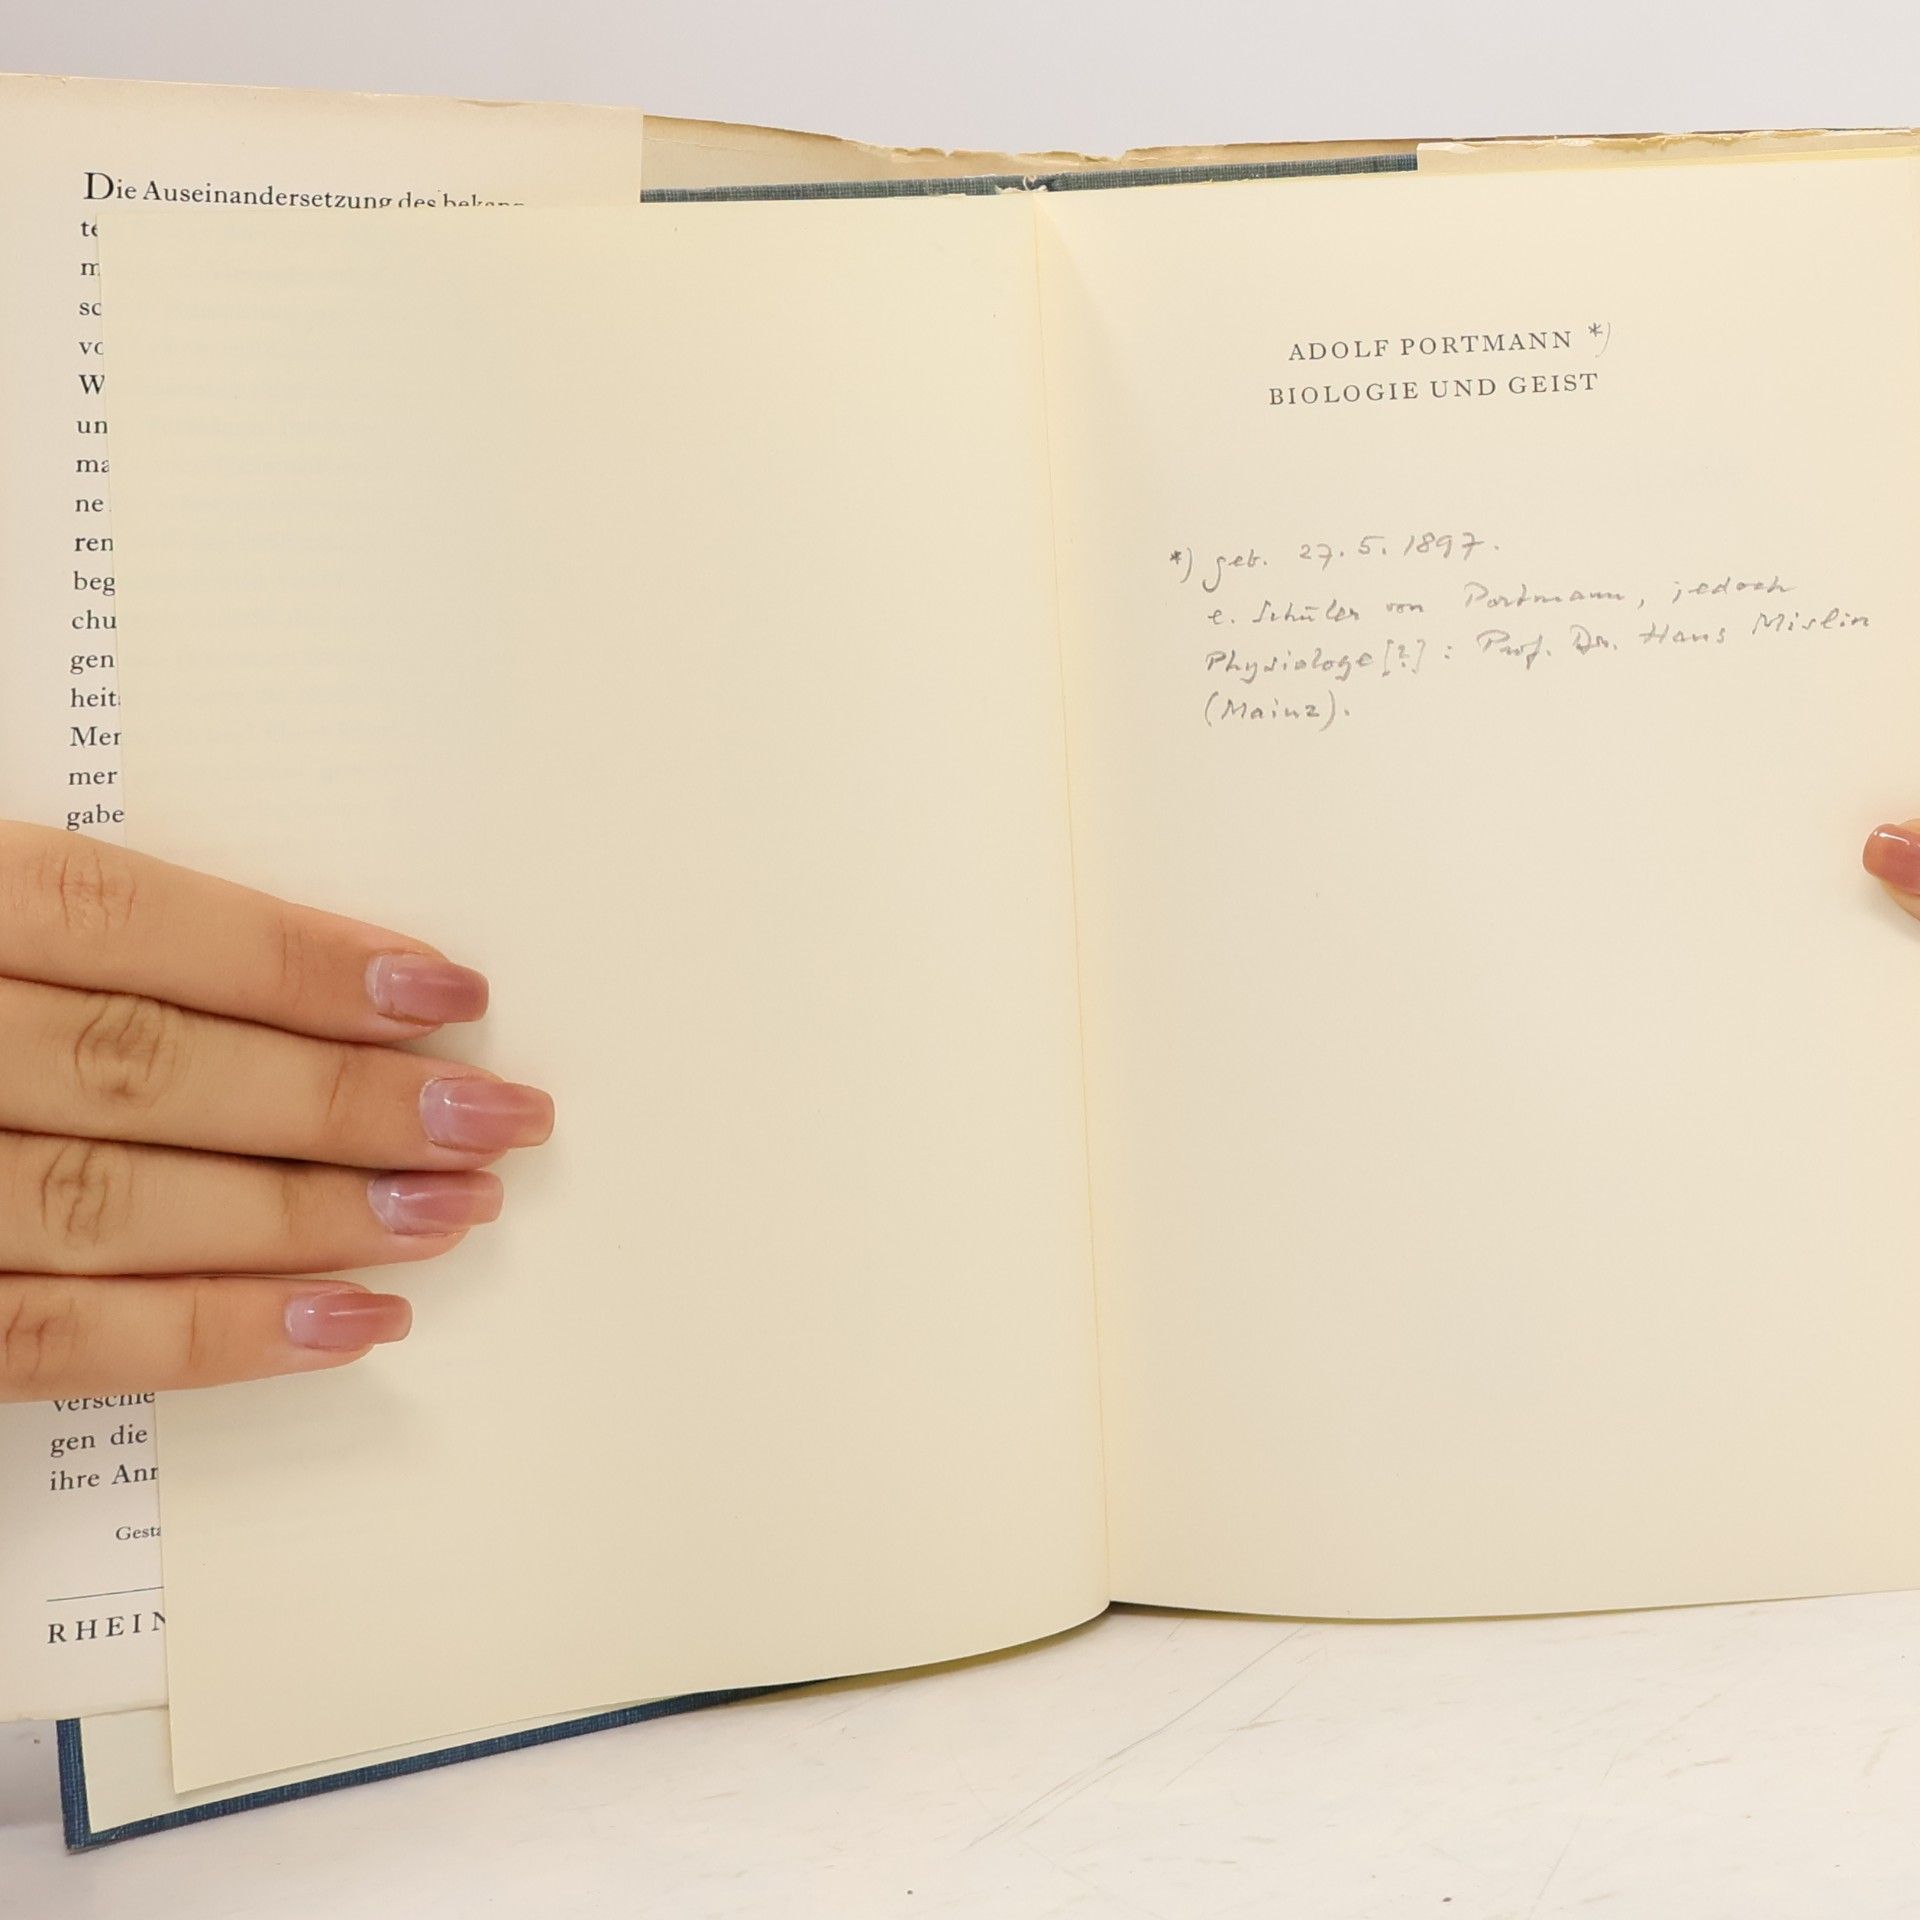 Die Auseinandersetzung des bekann-
te
m
sc
vo
W
un
ma
ne
ren
beg
chu
gen
heit
Men
mer
gabe
verschie
gen die
ihre Anr
Gesta
RHEIN
ADOLF PORTMANN *)
BIOLOGIE UND GEIST
*) geb. 27.5.1897.
e. Schüler von Portmann, jedoch
Physiologe [?] : Prof. Dr. Hans Mislin
(Mainz).